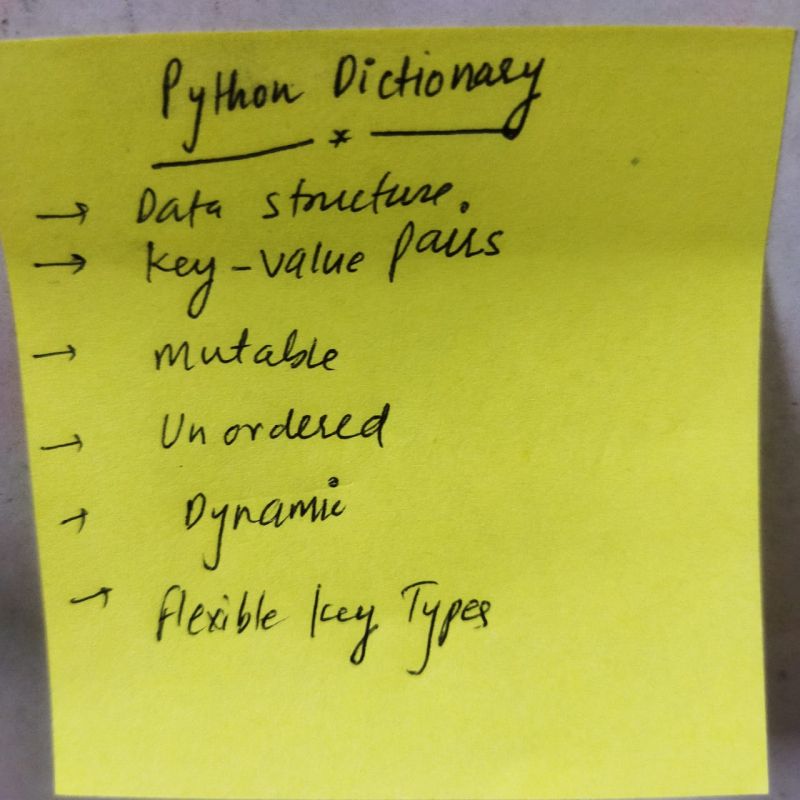 Python Dictionary
→ Data structure.
→ Key-value Pairs
→ Mutable
→ Unordered
→ Dynamic
→ Flexible Key Types